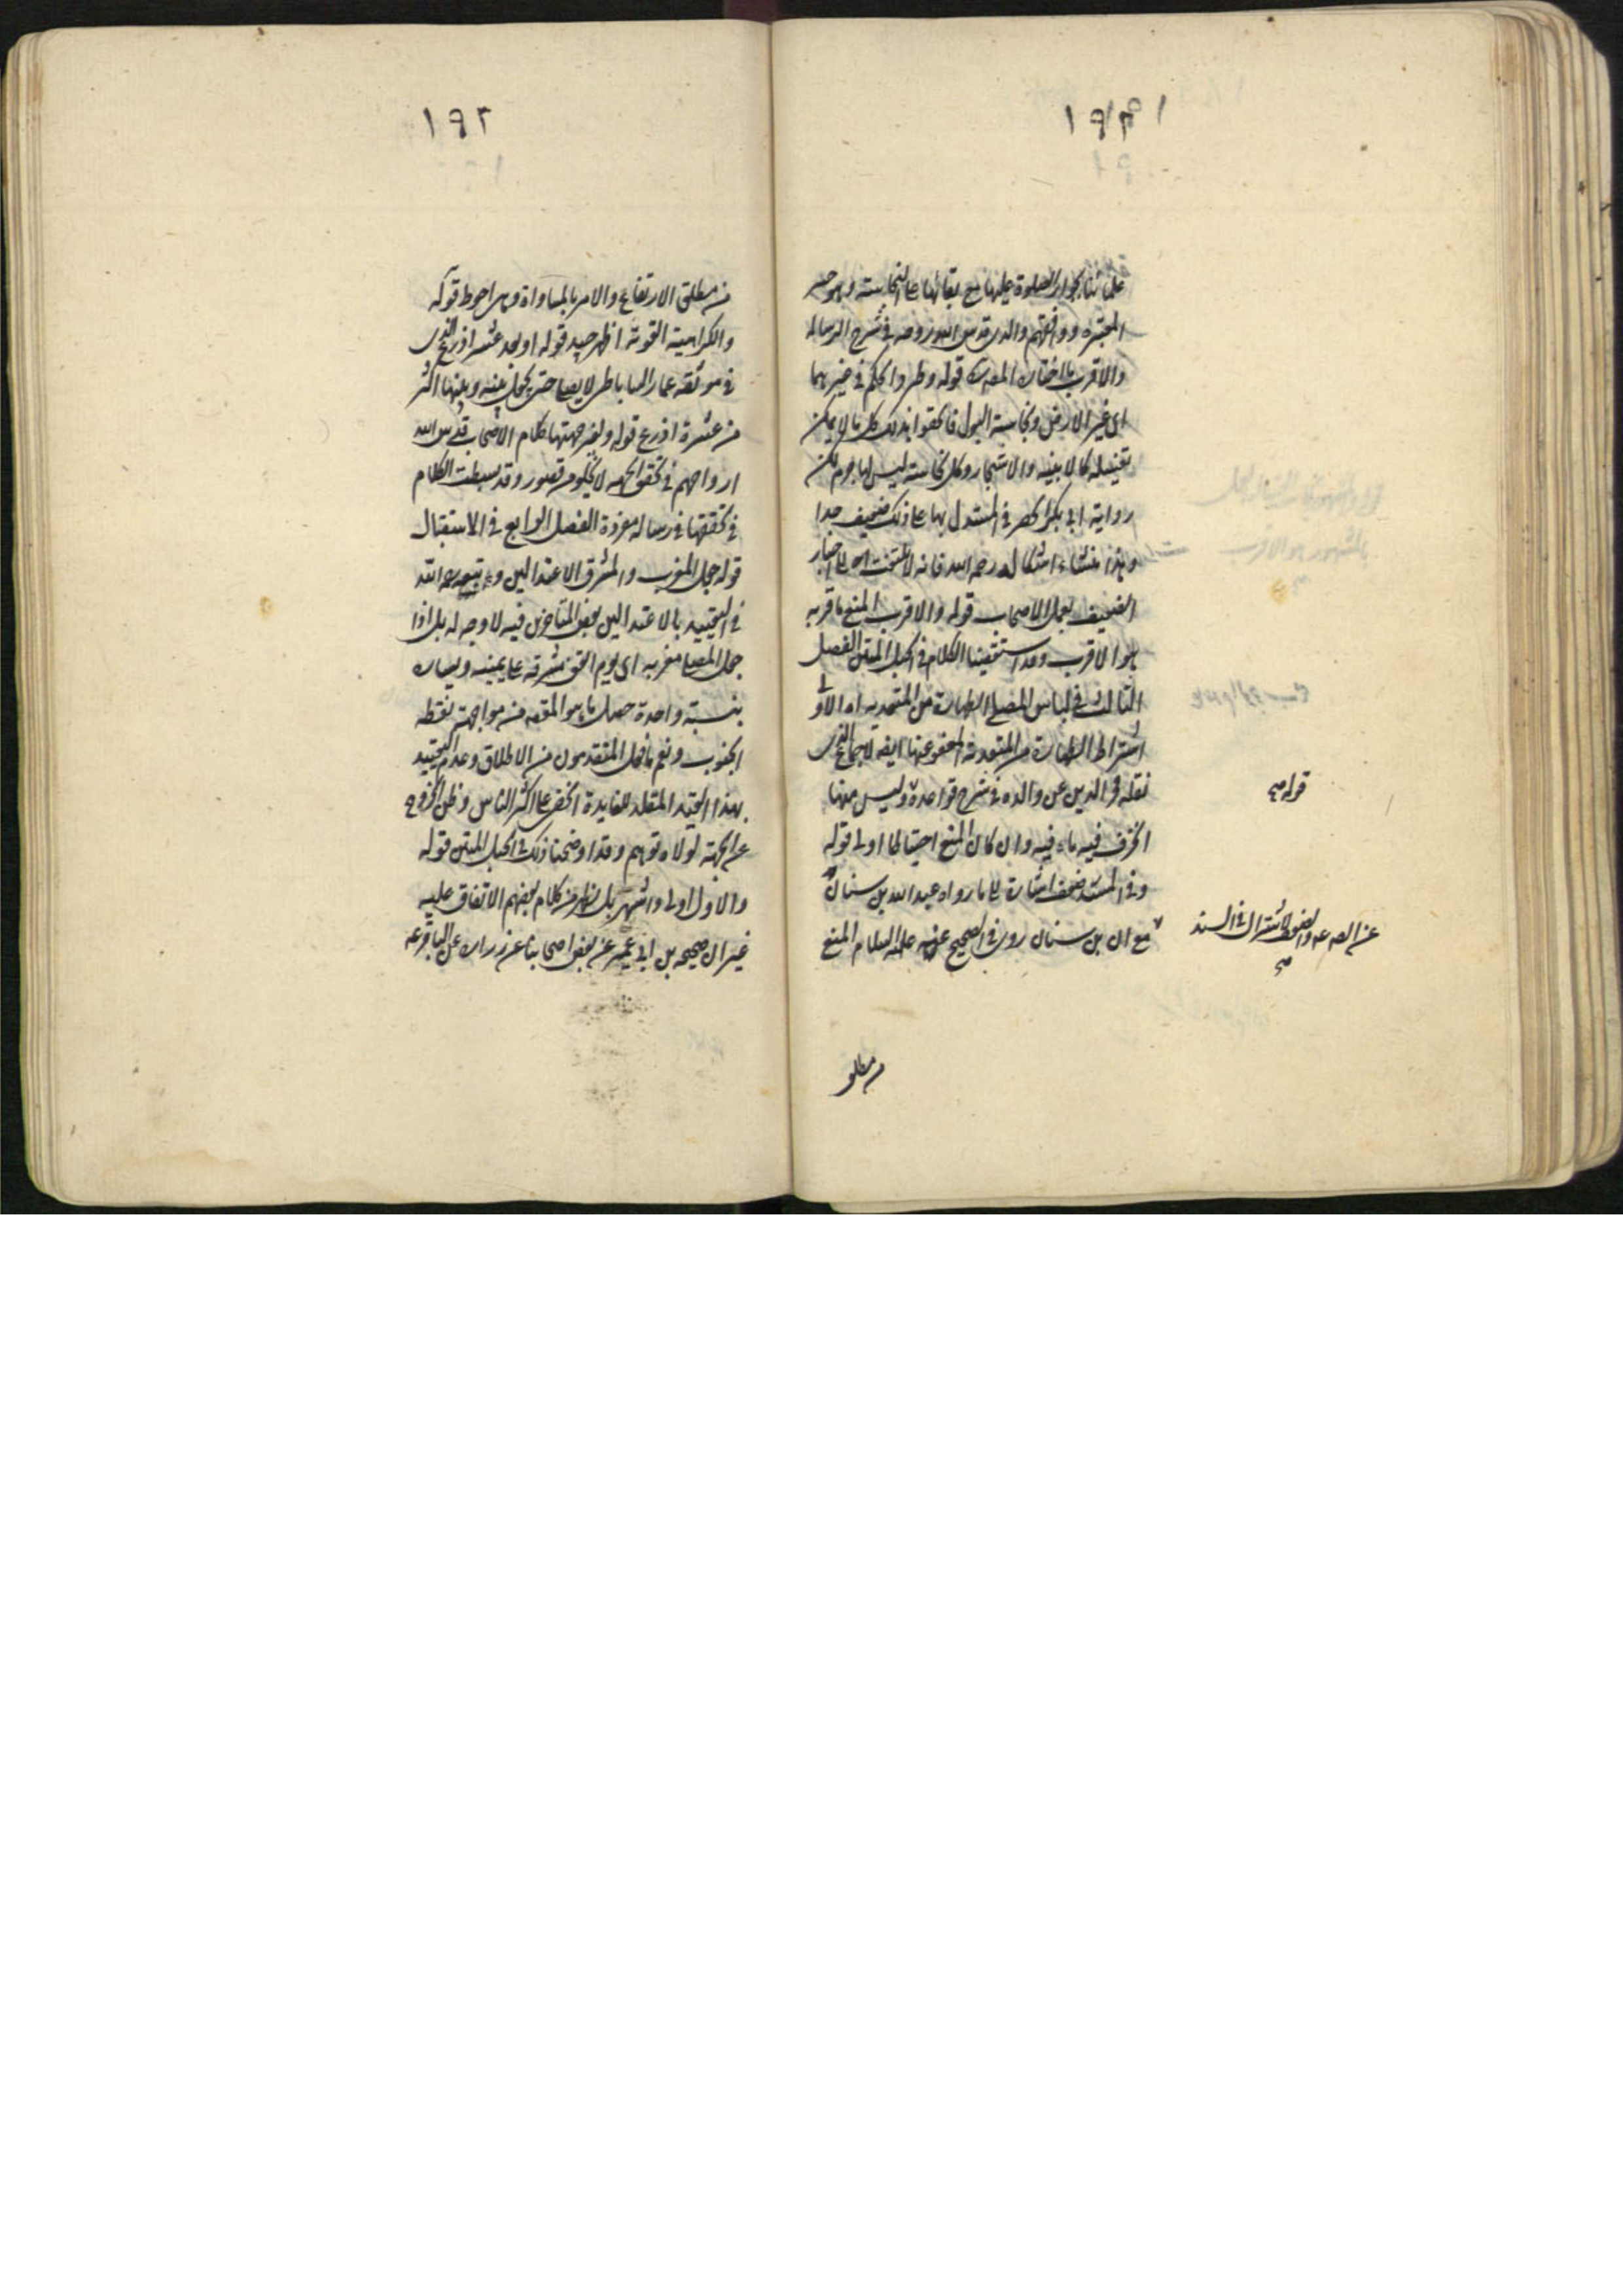 ١٩١
علمائنا بجواز الصلوة عليها مع بقائها على النجاسة وهو خيرة
المعتبر ووافقهم والدي قدس الله روحه في شرح الرسالة
والاقرب ما اختاره المصـ قوله وطردوا الحكم في غيرهما
اى غير الارض ونجاسة البول فالحقوا بذلك كل ما لا يمكن
تغسيله كالابنيه والاشجار وكل نجاسته ليس لها جرم لكن
رواية ابى بكر الحضرمي المستدل بها على ذلك ضعيف جدا
وهذا منشاء اشكاله رحمه الله فانه لا يلتفت الى اخبار
الضعيف بعمل الاصحاب قوله والاقرب المنع ما قربه
هو الاقرب وقد استقصينا الكلام في الحبل المتين الفصل
الثالث في لباس المصلى الطهارة من المتعديه اه الاولى
اشتراط الطهارة من المتعدية المعفو عنها ايضه للاجماع الذى
نقله فخر الدين عن والده في شرح قواعده وليس منها
الخزف فيه ما فيه وان كان المنع احتياطا اولى قوله
وفي المستند ضعف اشارة الى ما رواه عبد الله بن سنان
مع ان بن سنان روى في الصحيح عنه عليه السلام المنع
قوله صح
عن الصـ عه والضعف لاشتراك في السند
صح
من مطلق
١٩٢
من مطلق الارتفاع والامر بالمساواة وما مر احوط قوله
والكراهية القوية اظهر جيد قوله او بعد عشر اذرع الذى
في موثقة عمار الساباطى لا يصلى حتى يجعل بينه وبينها اكثر
من عشرة اذرع قوله ولغير جهتها كلام الاصحاب قدس الله
ارواحهم في تحقق الجهه لا يخلو من قصور وقد بسطت الكلام
في تحققها في رساله مفردة الفصل الرابع في الاستقبال
قوله جعل المغرب والمشرق الاعتدالين وتبعه رحمه الله
في التقييد بالاعتدالين بعض المتاخرين فيه لا وجه له بل اذا
جعل المصلى مغربه اى يوم اتفق مشرقه على يمينه ويساره
بنسبة واحدة حصل ما هو المقصـ من مواجهة نقطه
الجنوب ونعم ما فعل المتقدمون من الاطلاق وعدم التقييد
بهذا القيد المقلل للفايدة الخفى على اكثر الناس وظن الخروج
عن الجهة لولاه توهم وقد اوضحنا ذلك في الحبل المتين قوله
والاول اولى واشهر بل يظهر من كلام بعضهم الاتفاق عليه
غير ان صحيحه بن ابى عمير عن بعض اصحابنا عن زراره عن الباقر عه